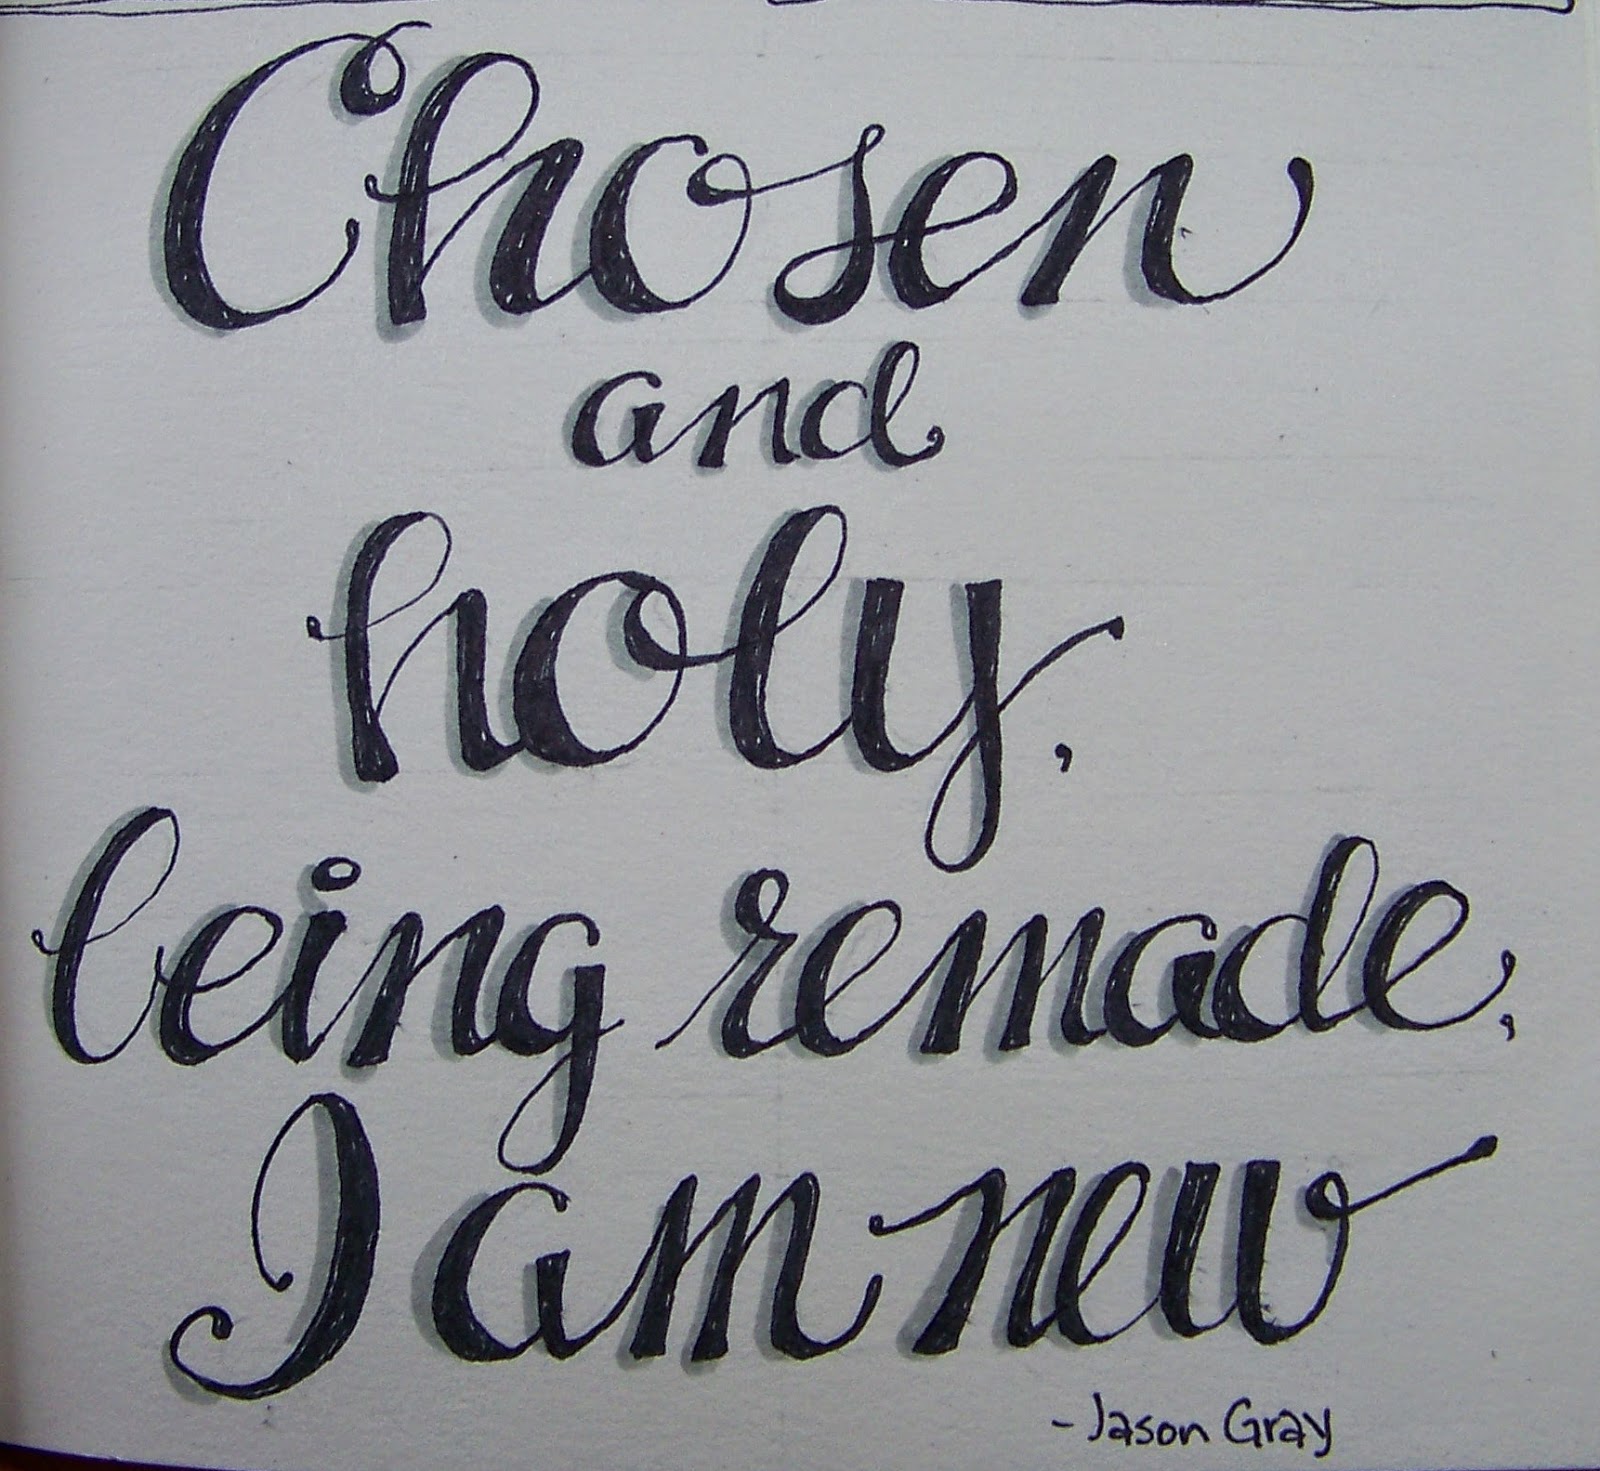 Chosen
and
holy,
being remade,
I am new
-Jason Gray